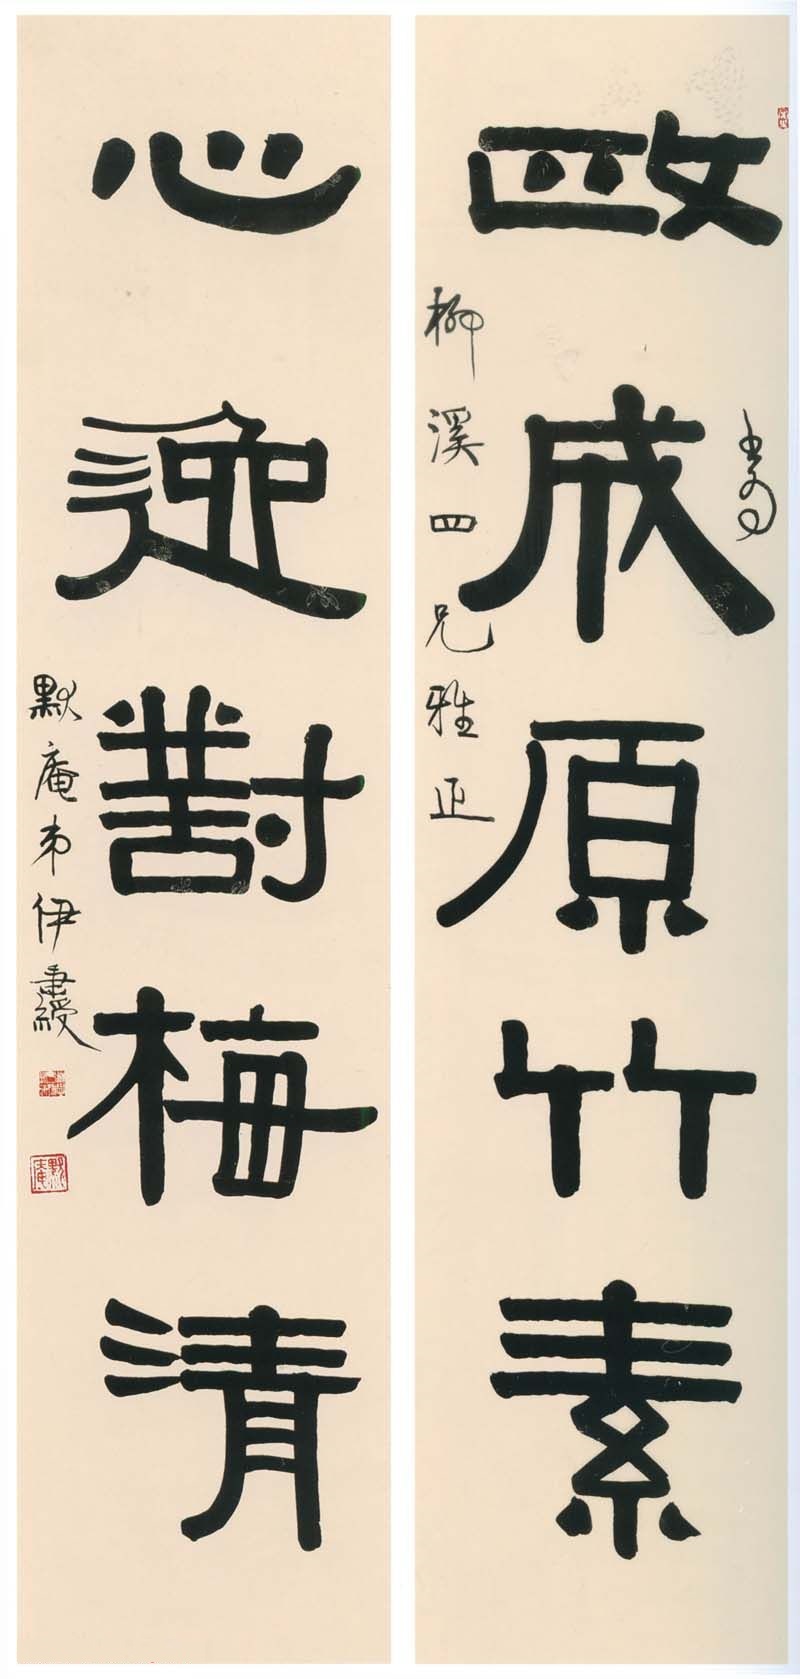 政成原竹素
書為
柳溪四兄雅正
心迹對梅清
默庵弟伊秉綬